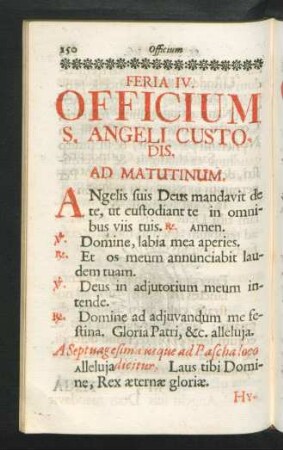 250 Officium
FERIA IV.
OFFICIUM
S. ANGELI CUSTO-
DIS.
AD MATUTINUM.
ANgelis suis Deus mandavit de
te, ut custodiant te in omni-
bus viis tuis. ℟. Amen.
℣. Domine, labia mea aperies.
℟. Et os meum annunciabit lau-
dem tuam.
℣. Deus in adjutorium meum in-
tende.
℟. Domine ad adjuvandum me fe-
stina. Gloria Patri, &c. alleluja.
A Septuagesima usque ad Pascha loco
alleluja dicitur. Laus tibi Domi-
ne, Rex æternæ gloriæ.
HY-